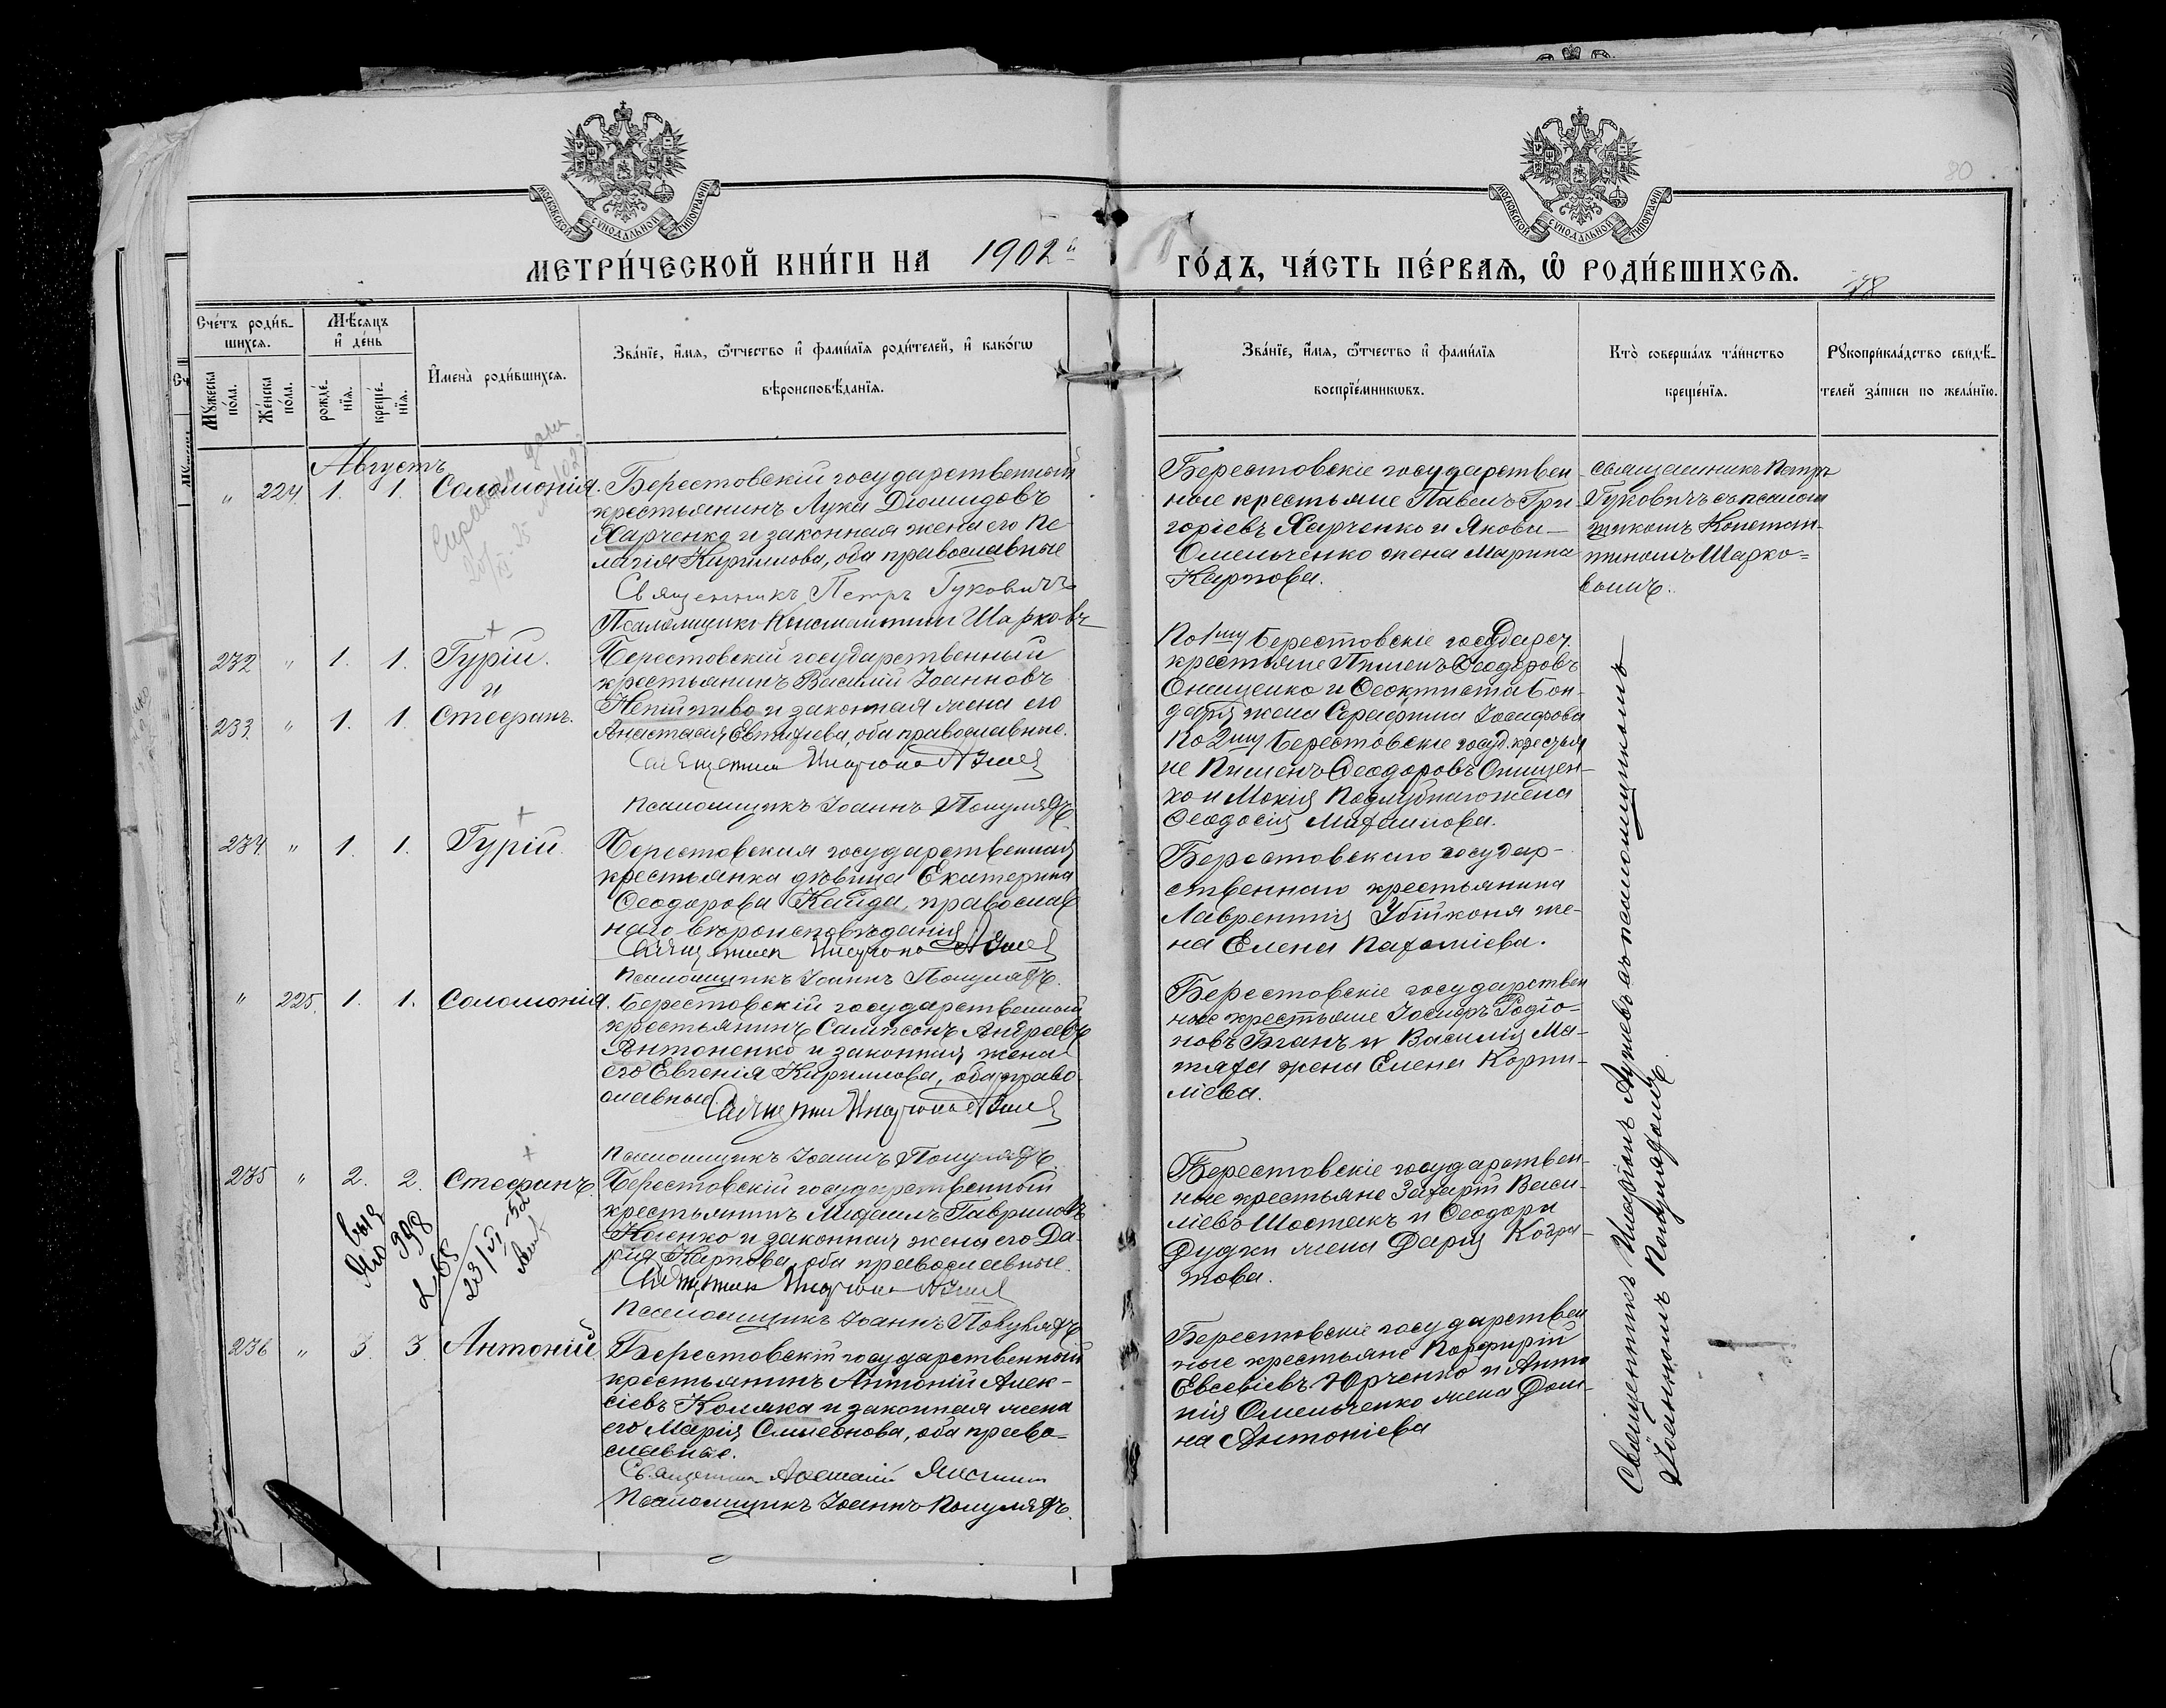 МОСКОВСКОЙ СУНОДАЛЬНОЙ ТИПОГРАФІИ
МОСКОВСКОЙ СУНОДАЛЬНОЙ ТИПОГРАФІИ
80
МЕТРИ́ЧЕСКОЙ КНИ́ГИ НА 1902й ГО́ДЪ, ЧА́СТЬ ПЕ́РВАѦ, Ѡ҆ РОДИ́ВШИХСѦ.
78
Сче́тъ роди́в-
шихсѧ.
Мꙋ́жеска по́ла.
Же́нска по́ла.
Мѣ́сѧцъ
и҆ де́нь
рожде́-
нїѧ.
креще́-
нїѧ.
И҆мена̀ роди́вшихсѧ.
Зва́нїе, и҆́мѧ, ѻ҆́тчество и҆ фами́лїѧ роди́телей, и҆ како́гѡ
вѣроисповѣ́данїѧ.
Зва́нїе, и҆́мѧ, ѻ҆́тчество и҆ фами́лїѧ
воспрїе́мникѡвъ.
Кто̀ соверша́лъ та́инство
креще́нїѧ.
Рꙋкоприкла́дство свидѣ́-
телей за́писи по жела́нїю.
Августъ
" 224. 1. 1. Соломонія.
Берестовскій государственный
крестьянинъ Лука Діомидовъ
Харченко и законная жена его Пе-
лагія Кириллова, оба православные
Священникъ Петръ Гуковичъ
Псаломщикъ Константинъ Шарковъ
Берестовскіе государствен
ные крестьяне Павелъ Гри-
горіевъ Харченко и Якова
Омельченко жена Марина
Карпова.
священникъ Петръ
Гуковичъ съ псалом
щикомъ Констан-
тиномъ Шарко-
вымъ.
232 " 1. 1. Гурій.
и
233. " 1. 1. Стефанъ.
Берестовскій государственный
крестьянинъ Василій Іоанновъ
Непійпиво и законная жена его
Анастасія Евтихіева, оба православные.
Священникъ Иларіонъ
Псаломщикъ Іоаннъ Популядъ
По 1му Берестовскіе государ.
крестьяне Пименъ Ѳеодоровъ
Онищенко и Ѳеоктиста Бон-
даря жена Серафима Іосифова
По 2му Берестовскіе госуд. крестья
не Пименъ Ѳеодоровъ Онищен-
ко и Мокія Подлубнаго жена
Ѳеодосія Михаилова.
234. " 1. 1. Гурій.
Берестовская государственная
крестьянка дѣвица Екатерина
Ѳеодорова Кайда, православ
наго вѣроисповѣданія
Священникъ Иларіонъ
Псаломщикъ Іоаннъ Популядъ.
Берестовскаго государ-
ственнаго крестьянина
Лаврентія Убійконя же-
на Елена Пахоміева.
" 225. 1. 1. Соломонія.
Берестовскій государственный
крестьянинъ Сампсонъ Андреевъ
Антоненко и законная жена
его Евгенія Кириллова, оба право-
славные.
Священникъ Иларіонъ
Псаломщикъ Іоаннъ Популядъ
Берестовскіе государствен
ные крестьяне Іосифъ Родіо-
новъ Бганъ и Василія Ма-
тяха жена Елена Корни-
ліева.
235 " 2. 2. Стефанъ.
Берестовскій государственный
крестьянинъ Михаилъ Гавриловъ
Косенко и законная жена его Да-
рія Карпова, оба православные.
Священникъ Иларіонъ
Псаломщикъ Іоаннъ Популядъ
Берестовскіе государствен-
ные крестьяне Захарій Васи-
ліевъ Шостакъ и Ѳеодора
Дудки жена Дарія Кодра-
това.
236 " 3. 3. Антоній.
Берестовскій государственный
крестьянинъ Антоній Алек-
сіевъ Коляка и законная жена
его Марія Симеонова, оба право-
славные.
Псаломщикъ Іоаннъ Популядъ.
Берестовскіе государствен
ные крестьяне Порфирій
Евсевіевъ Юрченко и Анто
нія Омельченко жена Дом-
на Антоніева
Священникъ Иларіонъ съ псаломщикомъ
Іоанномъ Популядомъ.